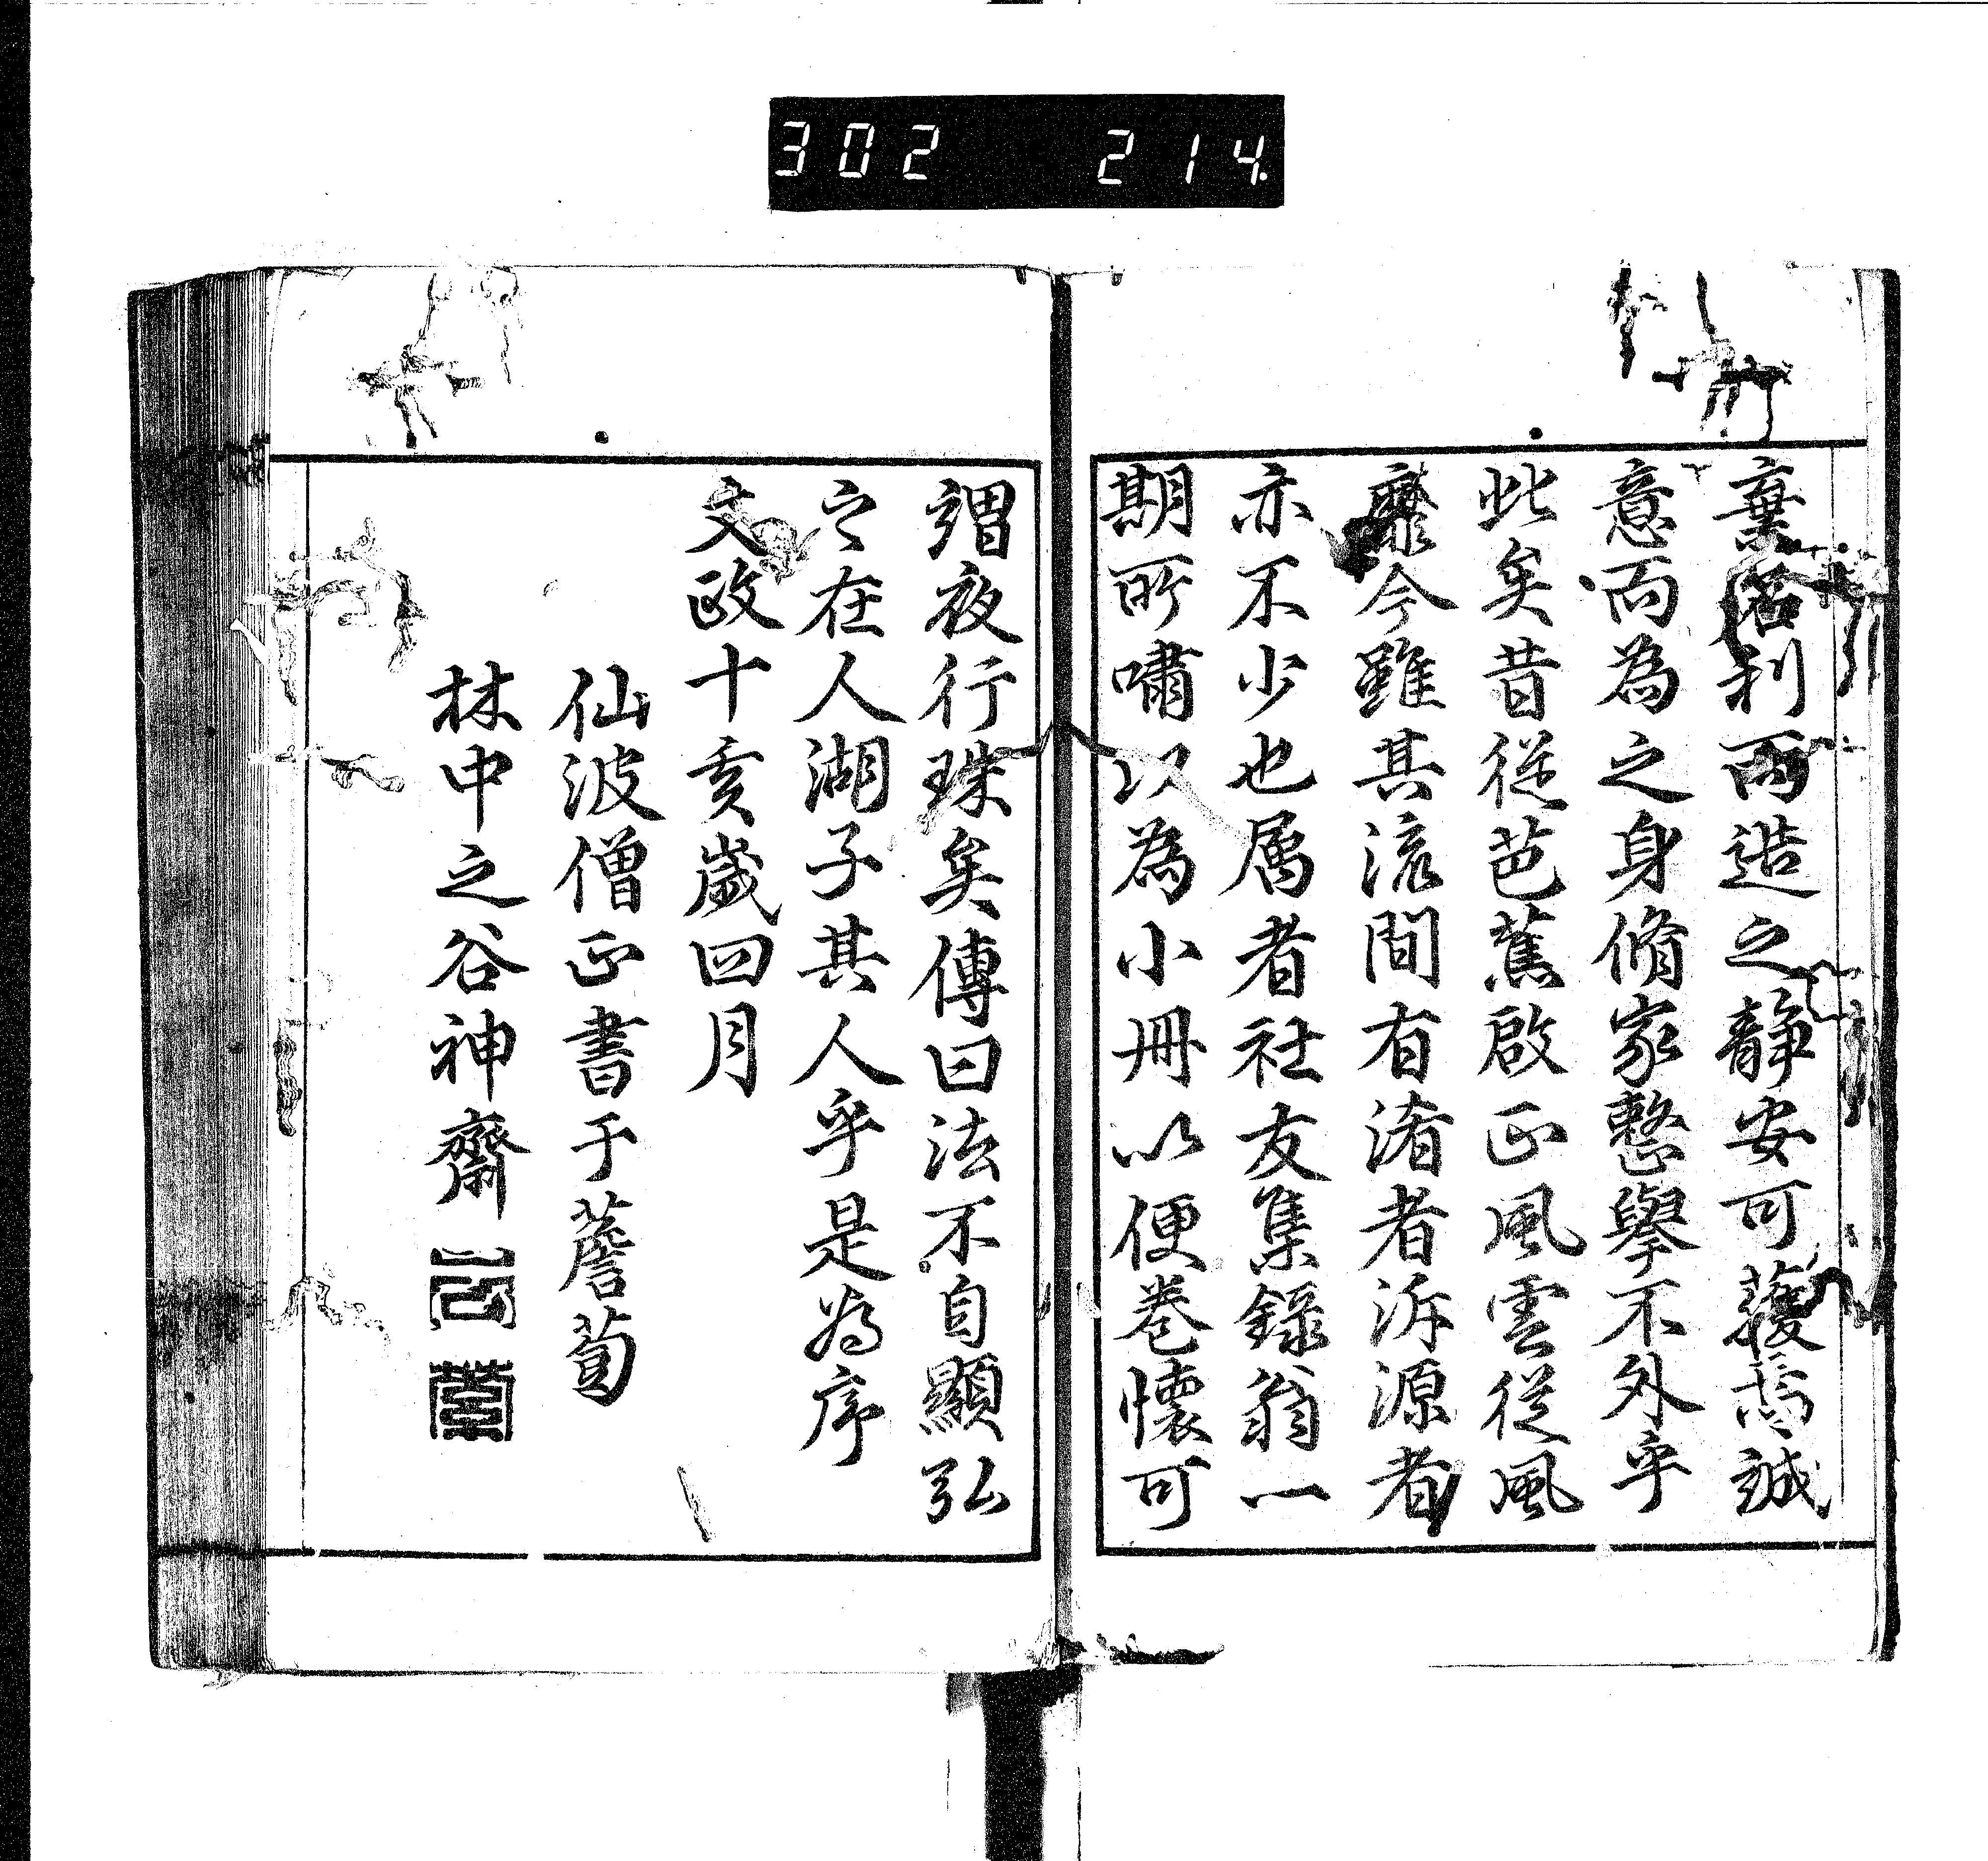 302 214
棄名利兩造之靜安可護焉誠
意而為之身脩家整擧不外乎
此矣昔從芭蕉啟正風雲從風
靡今雖其流間有淆者泝源者
亦不少也属者社友集錄翁一
期所嘯以為小冊以便卷懷可
謂夜行珠矣傳曰法不自顯弘
之在人湖子其人乎是為序
文政十亥歲四月
仙波僧正書于薝蔔
林中之谷神齋